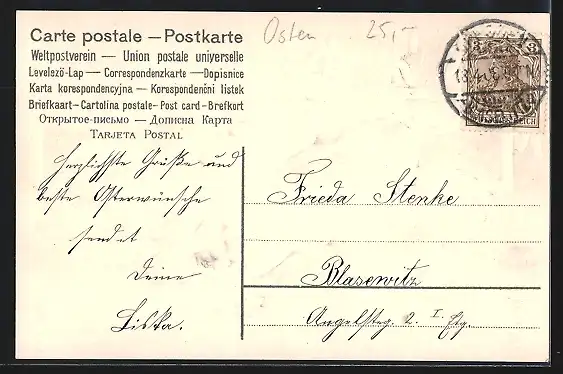 Carte postale — Postkarte
Weltpostverein — Union postale universelle
Levelező-Lap — Correspondenzkarte — Dopisnice
Karta korespondencyjna — Korespondenční lístek
Briefkaart — Cartolina postale — Post card — Brefkort
Открытое-письмо — Дописна Карта
Tarjeta Postal
Osten 25,-
3 3
DEUTSCHES REICH
Herzlichste Grüße und
beste Osterwünsche
sendet
Deine
Liska.
Frieda Stenke
Blasewitz
Angelsteg. 2. I Etg.